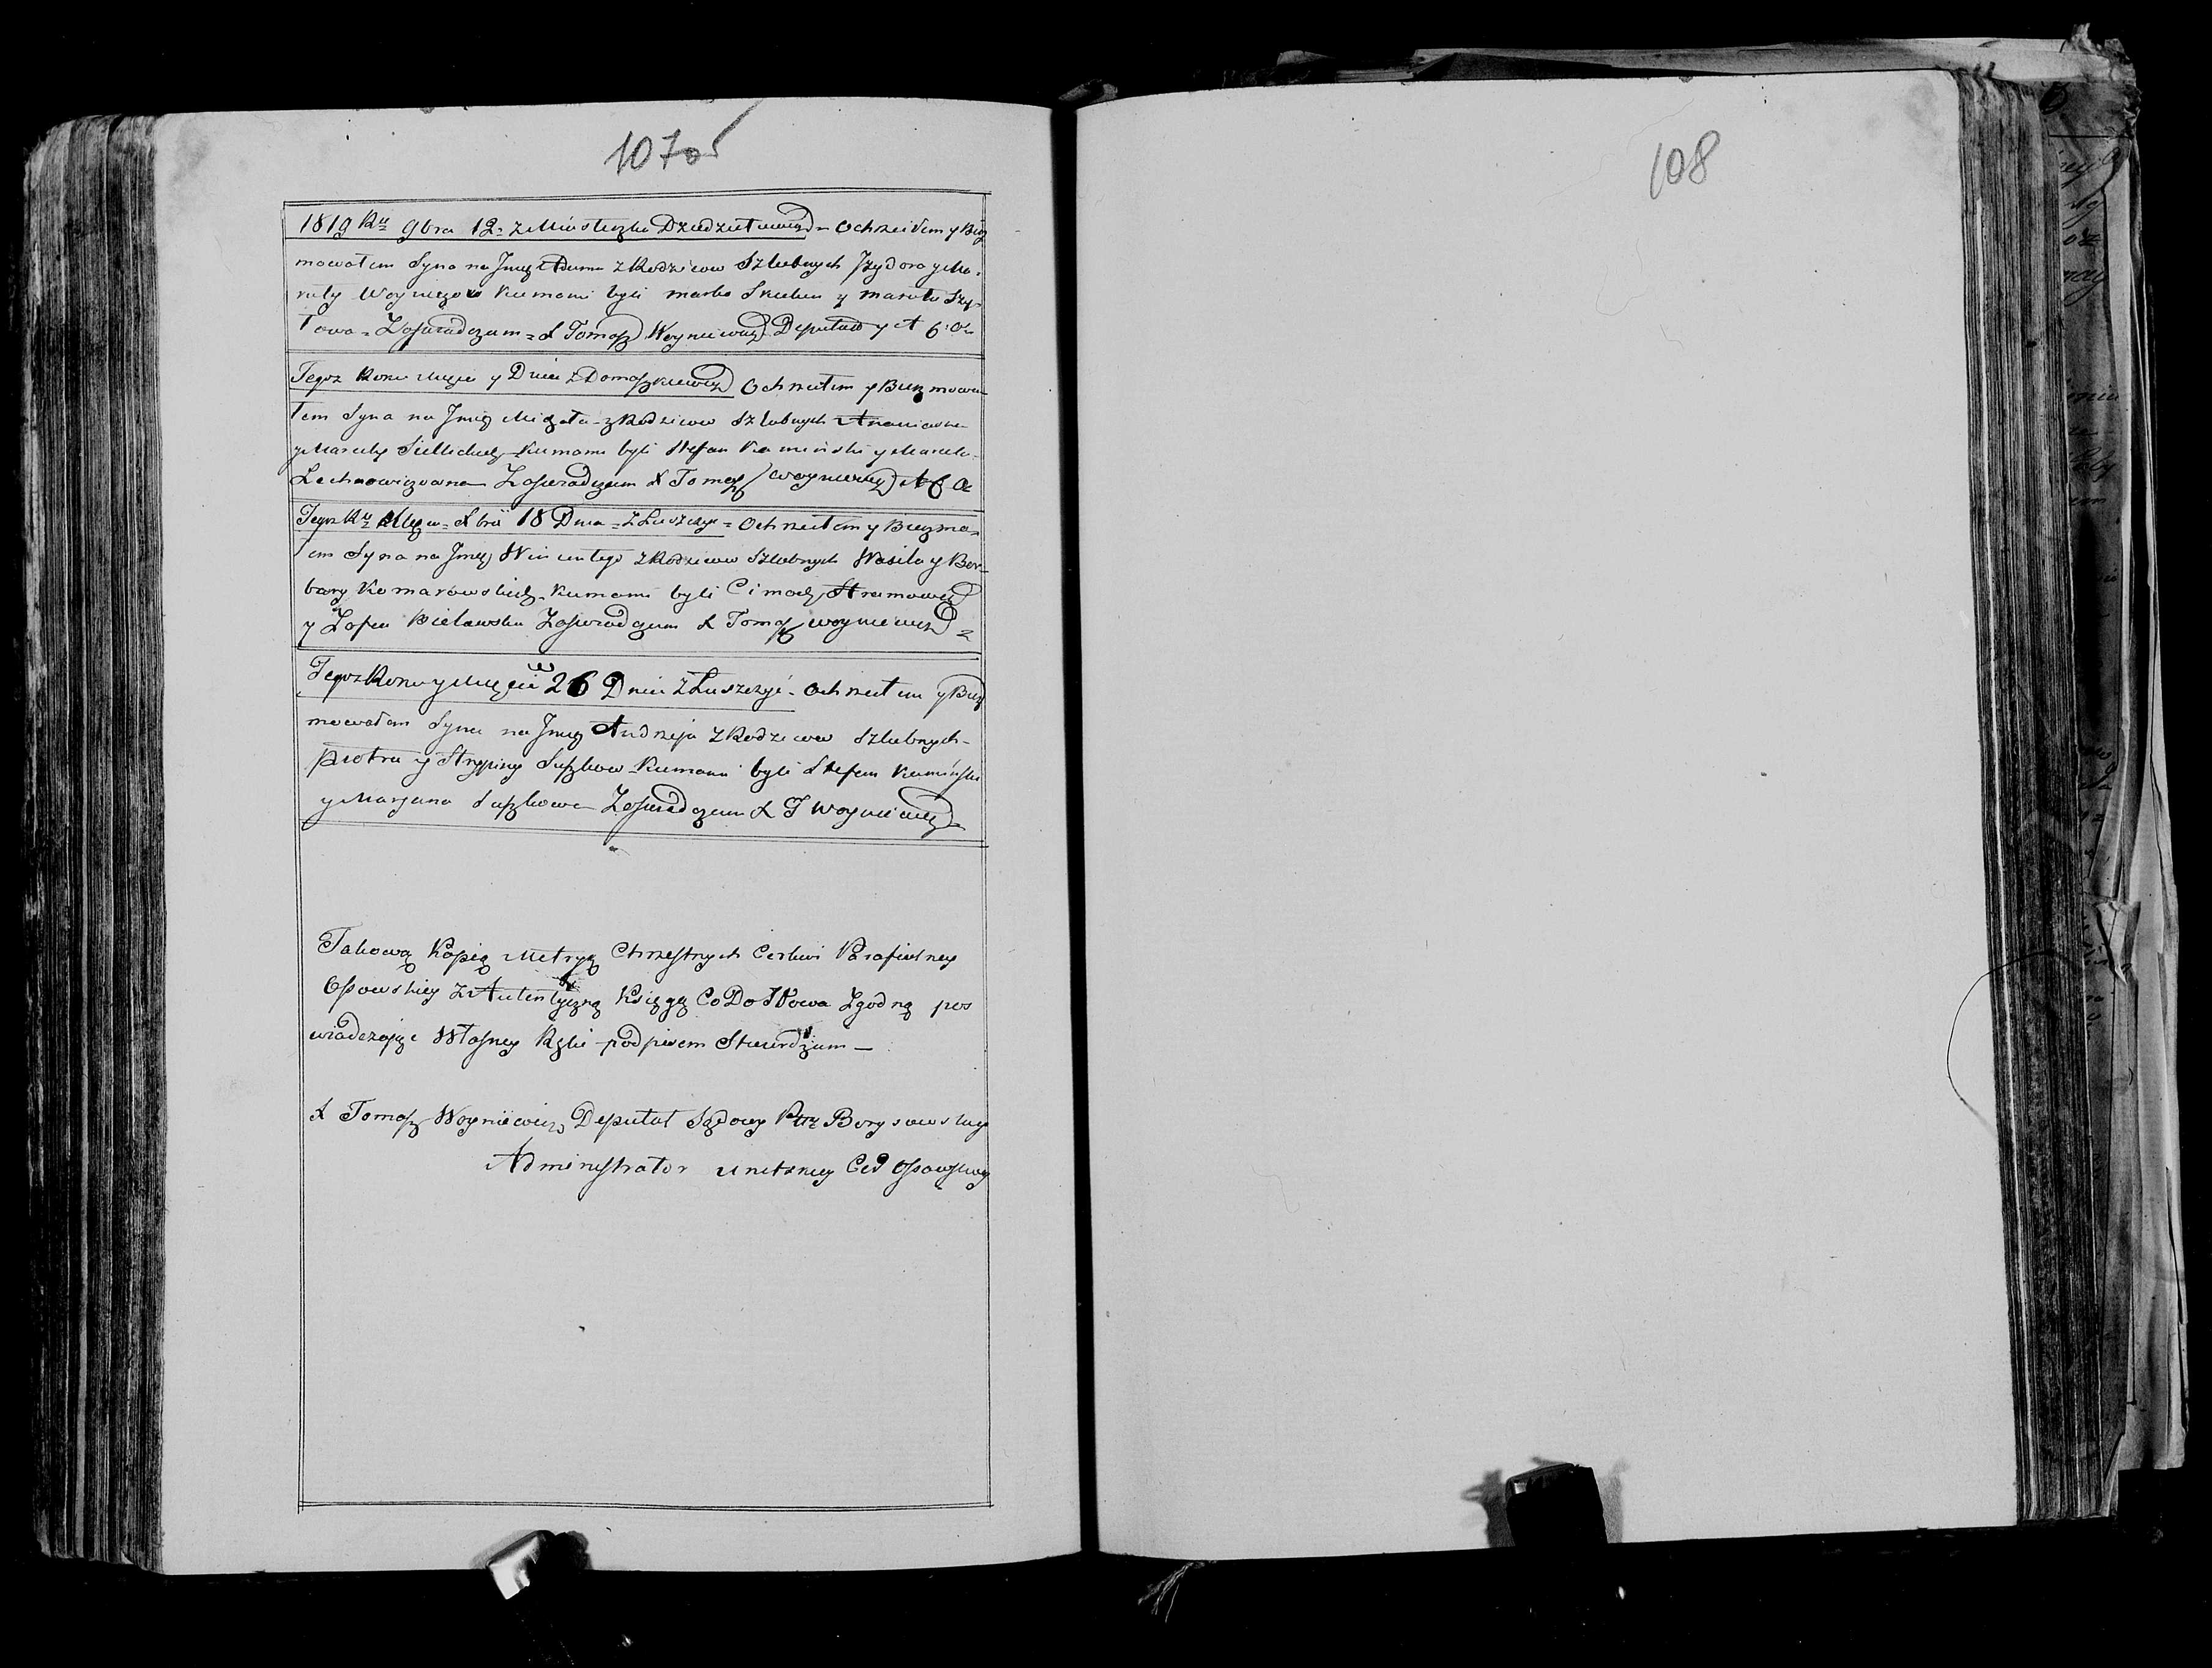 107 об
108
1819 Ru 9bra 12 = z Miasteczka Dziedziłowicz = Ochrzciłem y Bierz
mowałem Syna na Jmię Adama z Rodziców Szlubnych Jzydora y Ma
ruty Kumami byli Marko Skuben y Maruta Szy
towa = Zaświadczam = X Tomasz Woyniewicz Deputat y A C O
Tegoż Roku Msca y Dnia z Domaszkiewicz Ochrzciłem y Bierzmowa
łem Syna na Jmię Michała z Rodziców Szlubnych
y Maruty Kumami byli Stefan Kaminski y Maruta
Lachnowiczowna Zaświadczam X Tomasz Woyniewicz A C O
Tegoż Ru Msca Xbra 18 Dnia = z Łuszczyc = Ochrzciłem y Bierzmo
łem Syna na Jmię Wincentego z Rodziców Szlubnych Wasila y Bar
bary Komarowskich Kumami byli Cimoch
y Zofia Bielawska Zaświadczam X Tomasz Woyniewicz =
Tegoż Roku y Msca 26 Dnia z Łuszczyc - Ochrzciłem y Bierz
mowałem Syna na Jmię Andrzeja z Rodziców Szlubnych
Piotra y Suszkow Kumami byli Stefan Kaminski
y Maryana Suszkowa Zaświadczam X T Woyniewicz
Takową Kopię Metryk Chrzestnych Cerkwi Parafialney
Osowskiey z Autentyczną Księgą Co Do Słowa Zgodną pos
wiadczając Własney Ręki podpisem Stwierdzam —
X Tomasz Woyniewicz Deputat Sądowy Pttu Borysowskiego
Administrator Unitskiey Cer Osowskiey